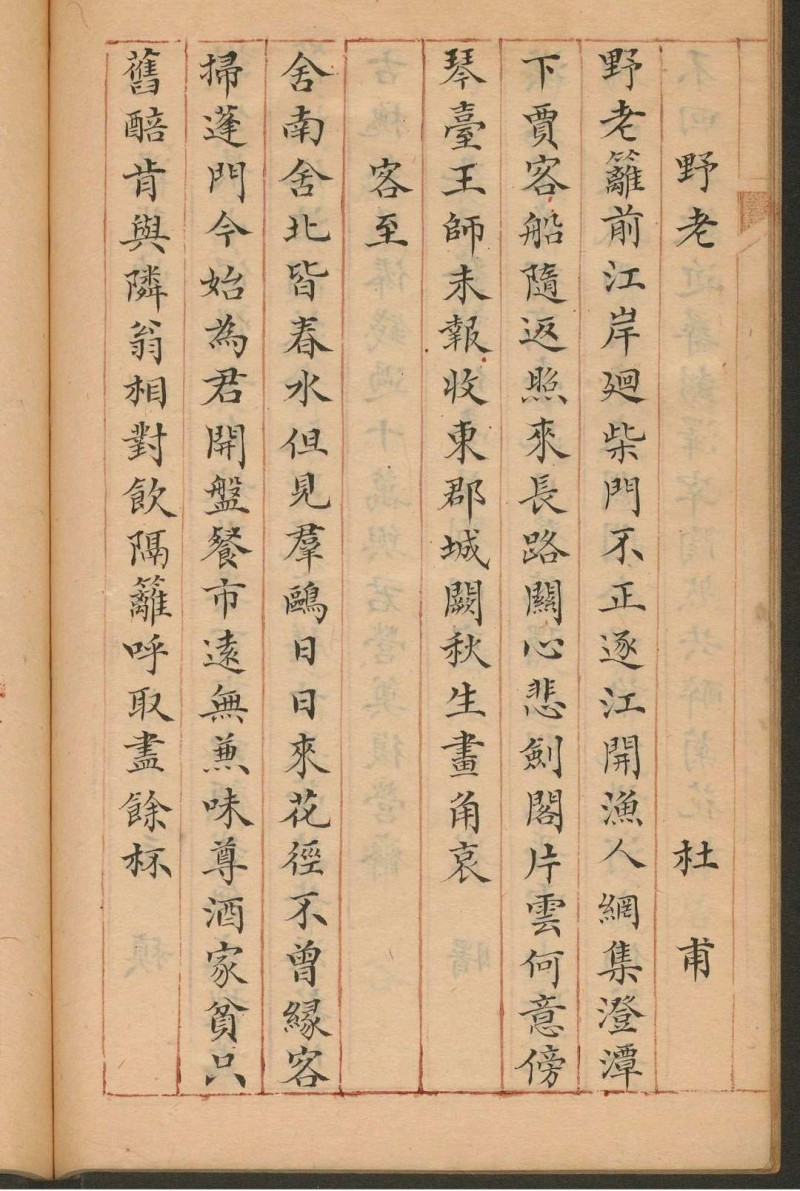 野老 杜甫
野老籬前江岸廻柴門不正逐江開漁人網集澄潭
下賈客船隨返照來長路關心悲劍閣片雲何意傍
琴臺王師未報收東郡城闕秋生畫角哀
客至
舍南舍北皆春水但見羣鷗日日來花徑不曾緣客
掃蓬門今始為君開盤餐市遠無兼味尊酒家貧只
舊醅肯與隣翁相對飲隔籬呼取盡餘杯